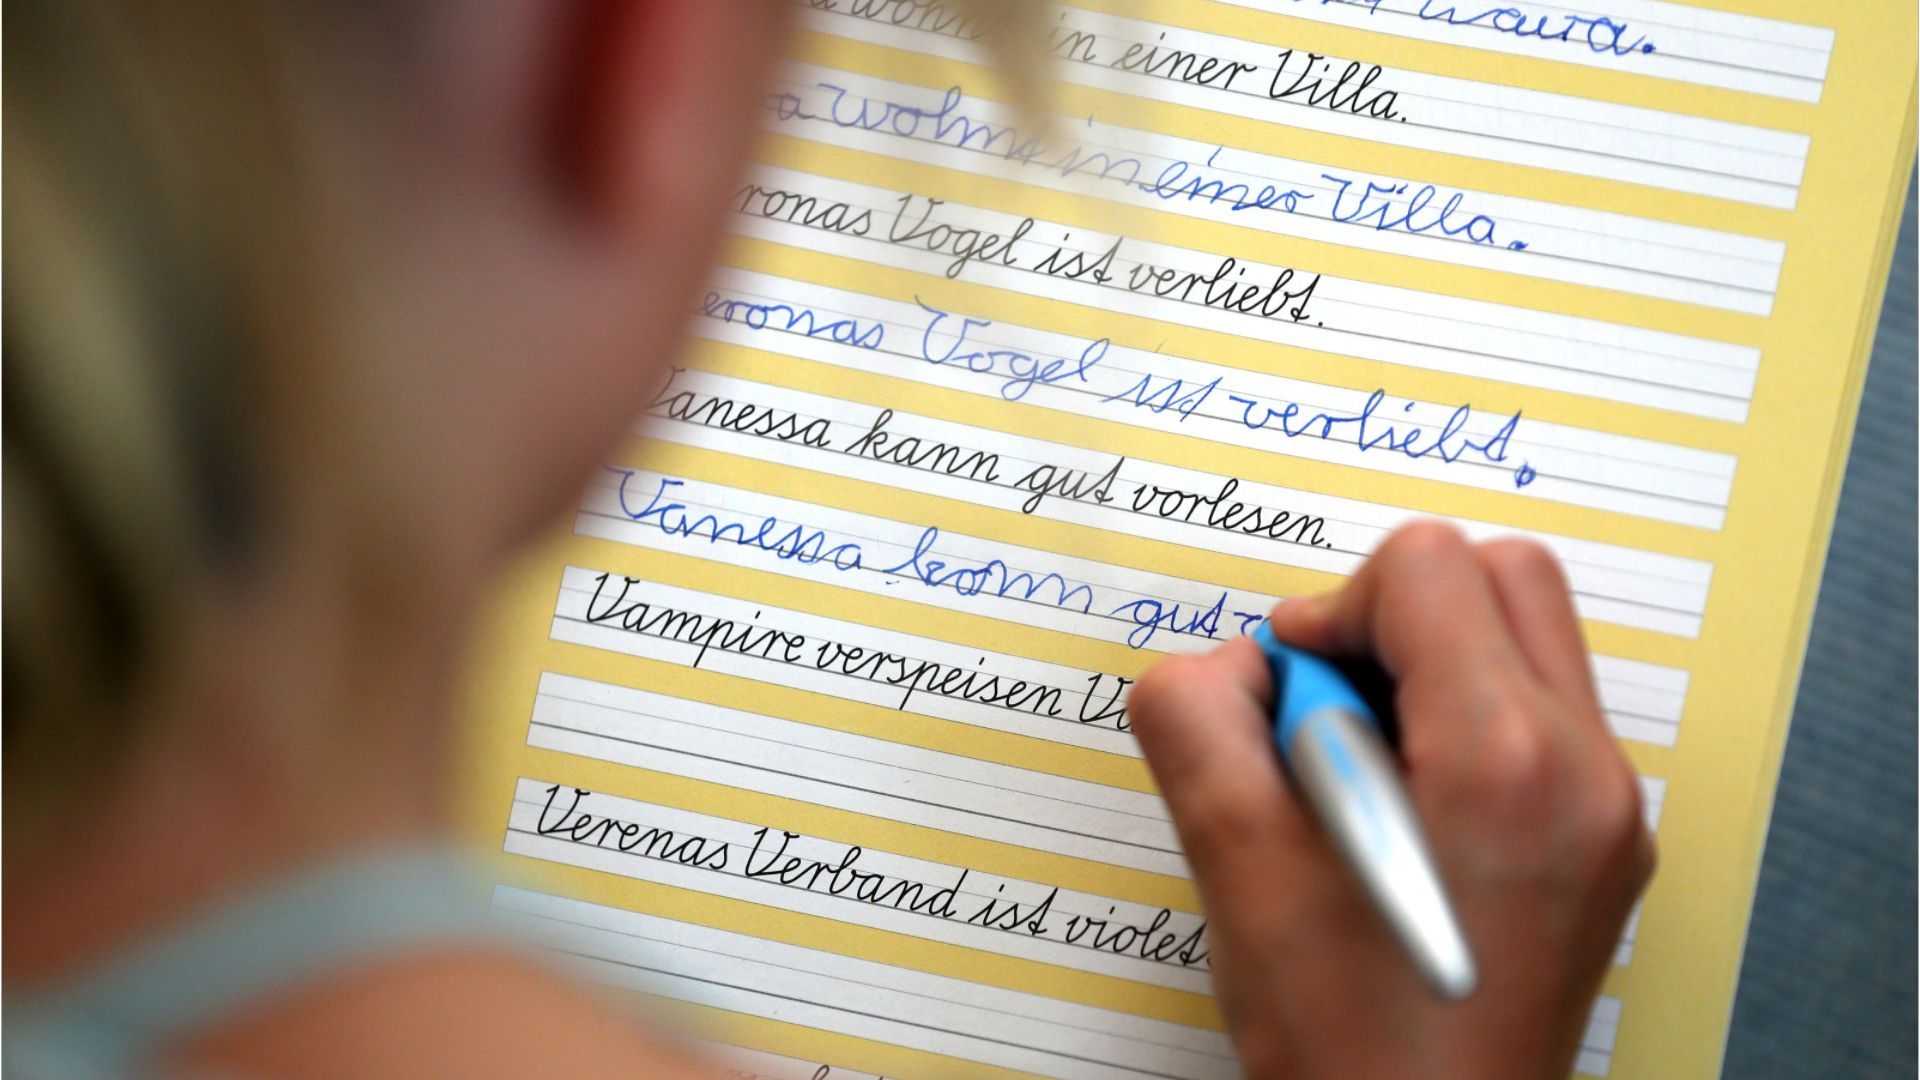 in einer Villa.
wohnt in einer Villa.
Vogel ist verliebt.
Vogel ist verliebt.
Vanessa kann gut vorlesen.
Vanessa kann gut
Vampire verspeisen
Verenas Verband ist violet